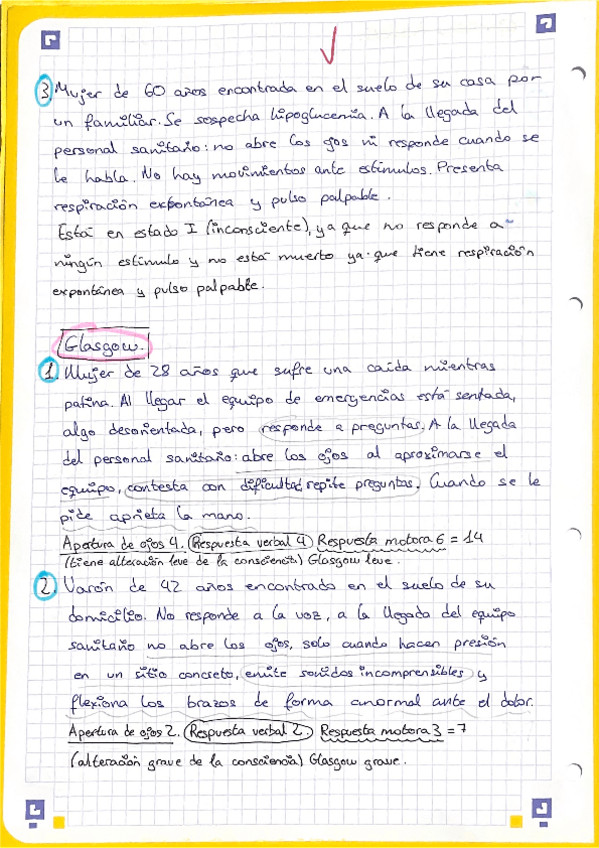 3. Mujer de 60 años encontrada en el suelo de su casa por
un familiar. Se sospecha hipoglucemia. A la llegada del
personal sanitario: no abre los ojos ni responde cuando se
le habla. No hay movimientos ante estímulos. Presenta
respiración expontánea y pulso palpable.
Está en estado I (inconsciente), ya que no responde a
ningún estímulo y no está muerto ya que tiene respiración
expontánea y pulso palpable.
Glasgow.
1. Mujer de 28 años que sufre una caída mientras
patina. Al llegar el equipo de emergencias está sentada,
algo desorientada, pero responde a preguntas. A la llegada
del personal sanitario: abre los ojos al aproximarse el
equipo, contesta con dificultad, repite preguntas. Cuando se le
pide aprieta la mano.
Apertura de ojos 4. Respuesta verbal 4 Respuesta motora 6 = 14
(tiene alteración leve de la consciencia) Glasgow leve.
2. Varón de 42 años encontrado en el suelo de su
domicilio. No responde a la voz, a la llegada del equipo
sanitario no abre los ojos, solo cuando hacen presión
en un sitio concreto, emite sonidos incomprensibles y
flexiona los brazos de forma anormal ante el dolor.
Apertura de ojos 2. Respuesta verbal 2. Respuesta motora 3 = 7
(alteración grave de la consciencia) Glasgow grave.